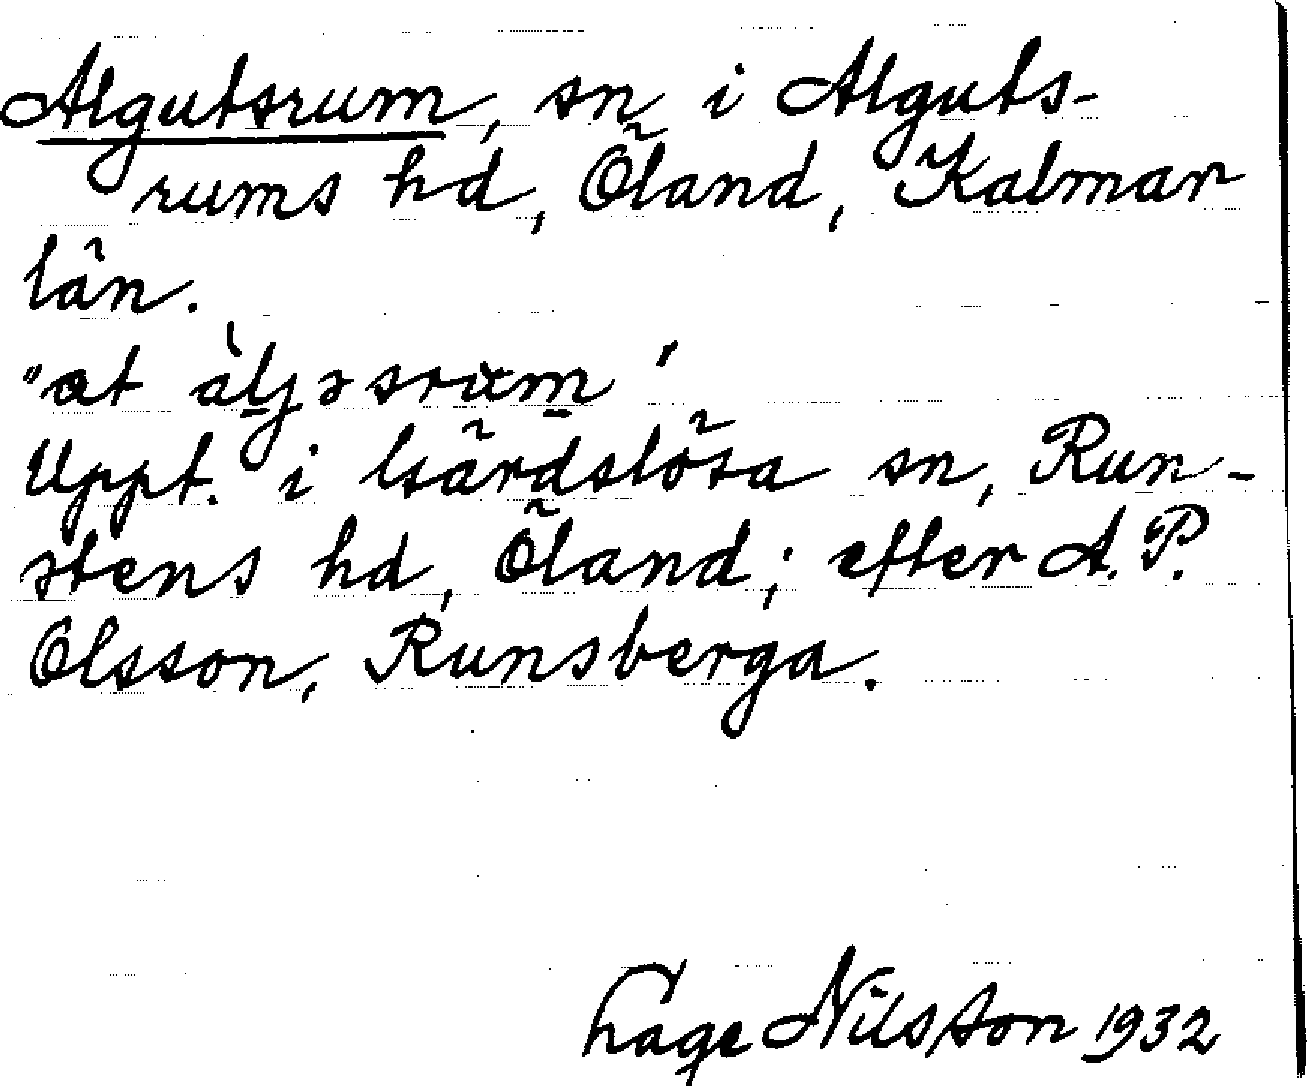 Algutsrum, sn i Alguts-
rums hd, Öland, Kalmar
län.
Uppt. i Gärdslösa sn, Run-
stens hd, Öland; efter A. P.
Olsson, Runsberga.
Nilsson 1932